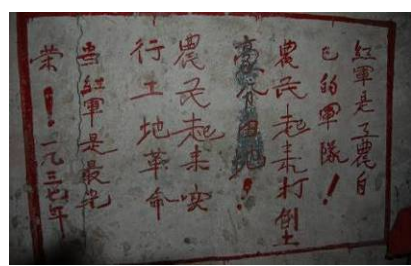 紅軍是工農自
己的軍隊！
農民起来打倒土
豪分田地！
農民起来实
行土地革命
当紅軍是最光
荣！一九三七年